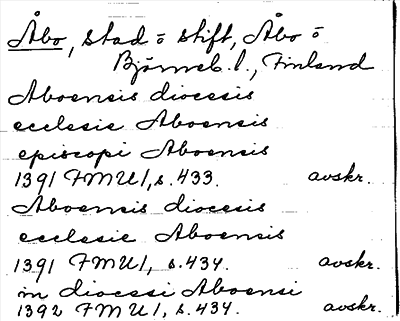 Åbo, stad ō stift, Åbo ō
Björneb. l., Finland
Aboensis diocesis
ecclesie Aboensis
episcopi Aboensis
1391 FMU I, s. 433. avskr.
Aboensis diocesis
ecclesie Aboensis
1391 FMU I, s. 434. avskr.
in diocesi Aboensi
1392 FMU I, s. 434. avskr.